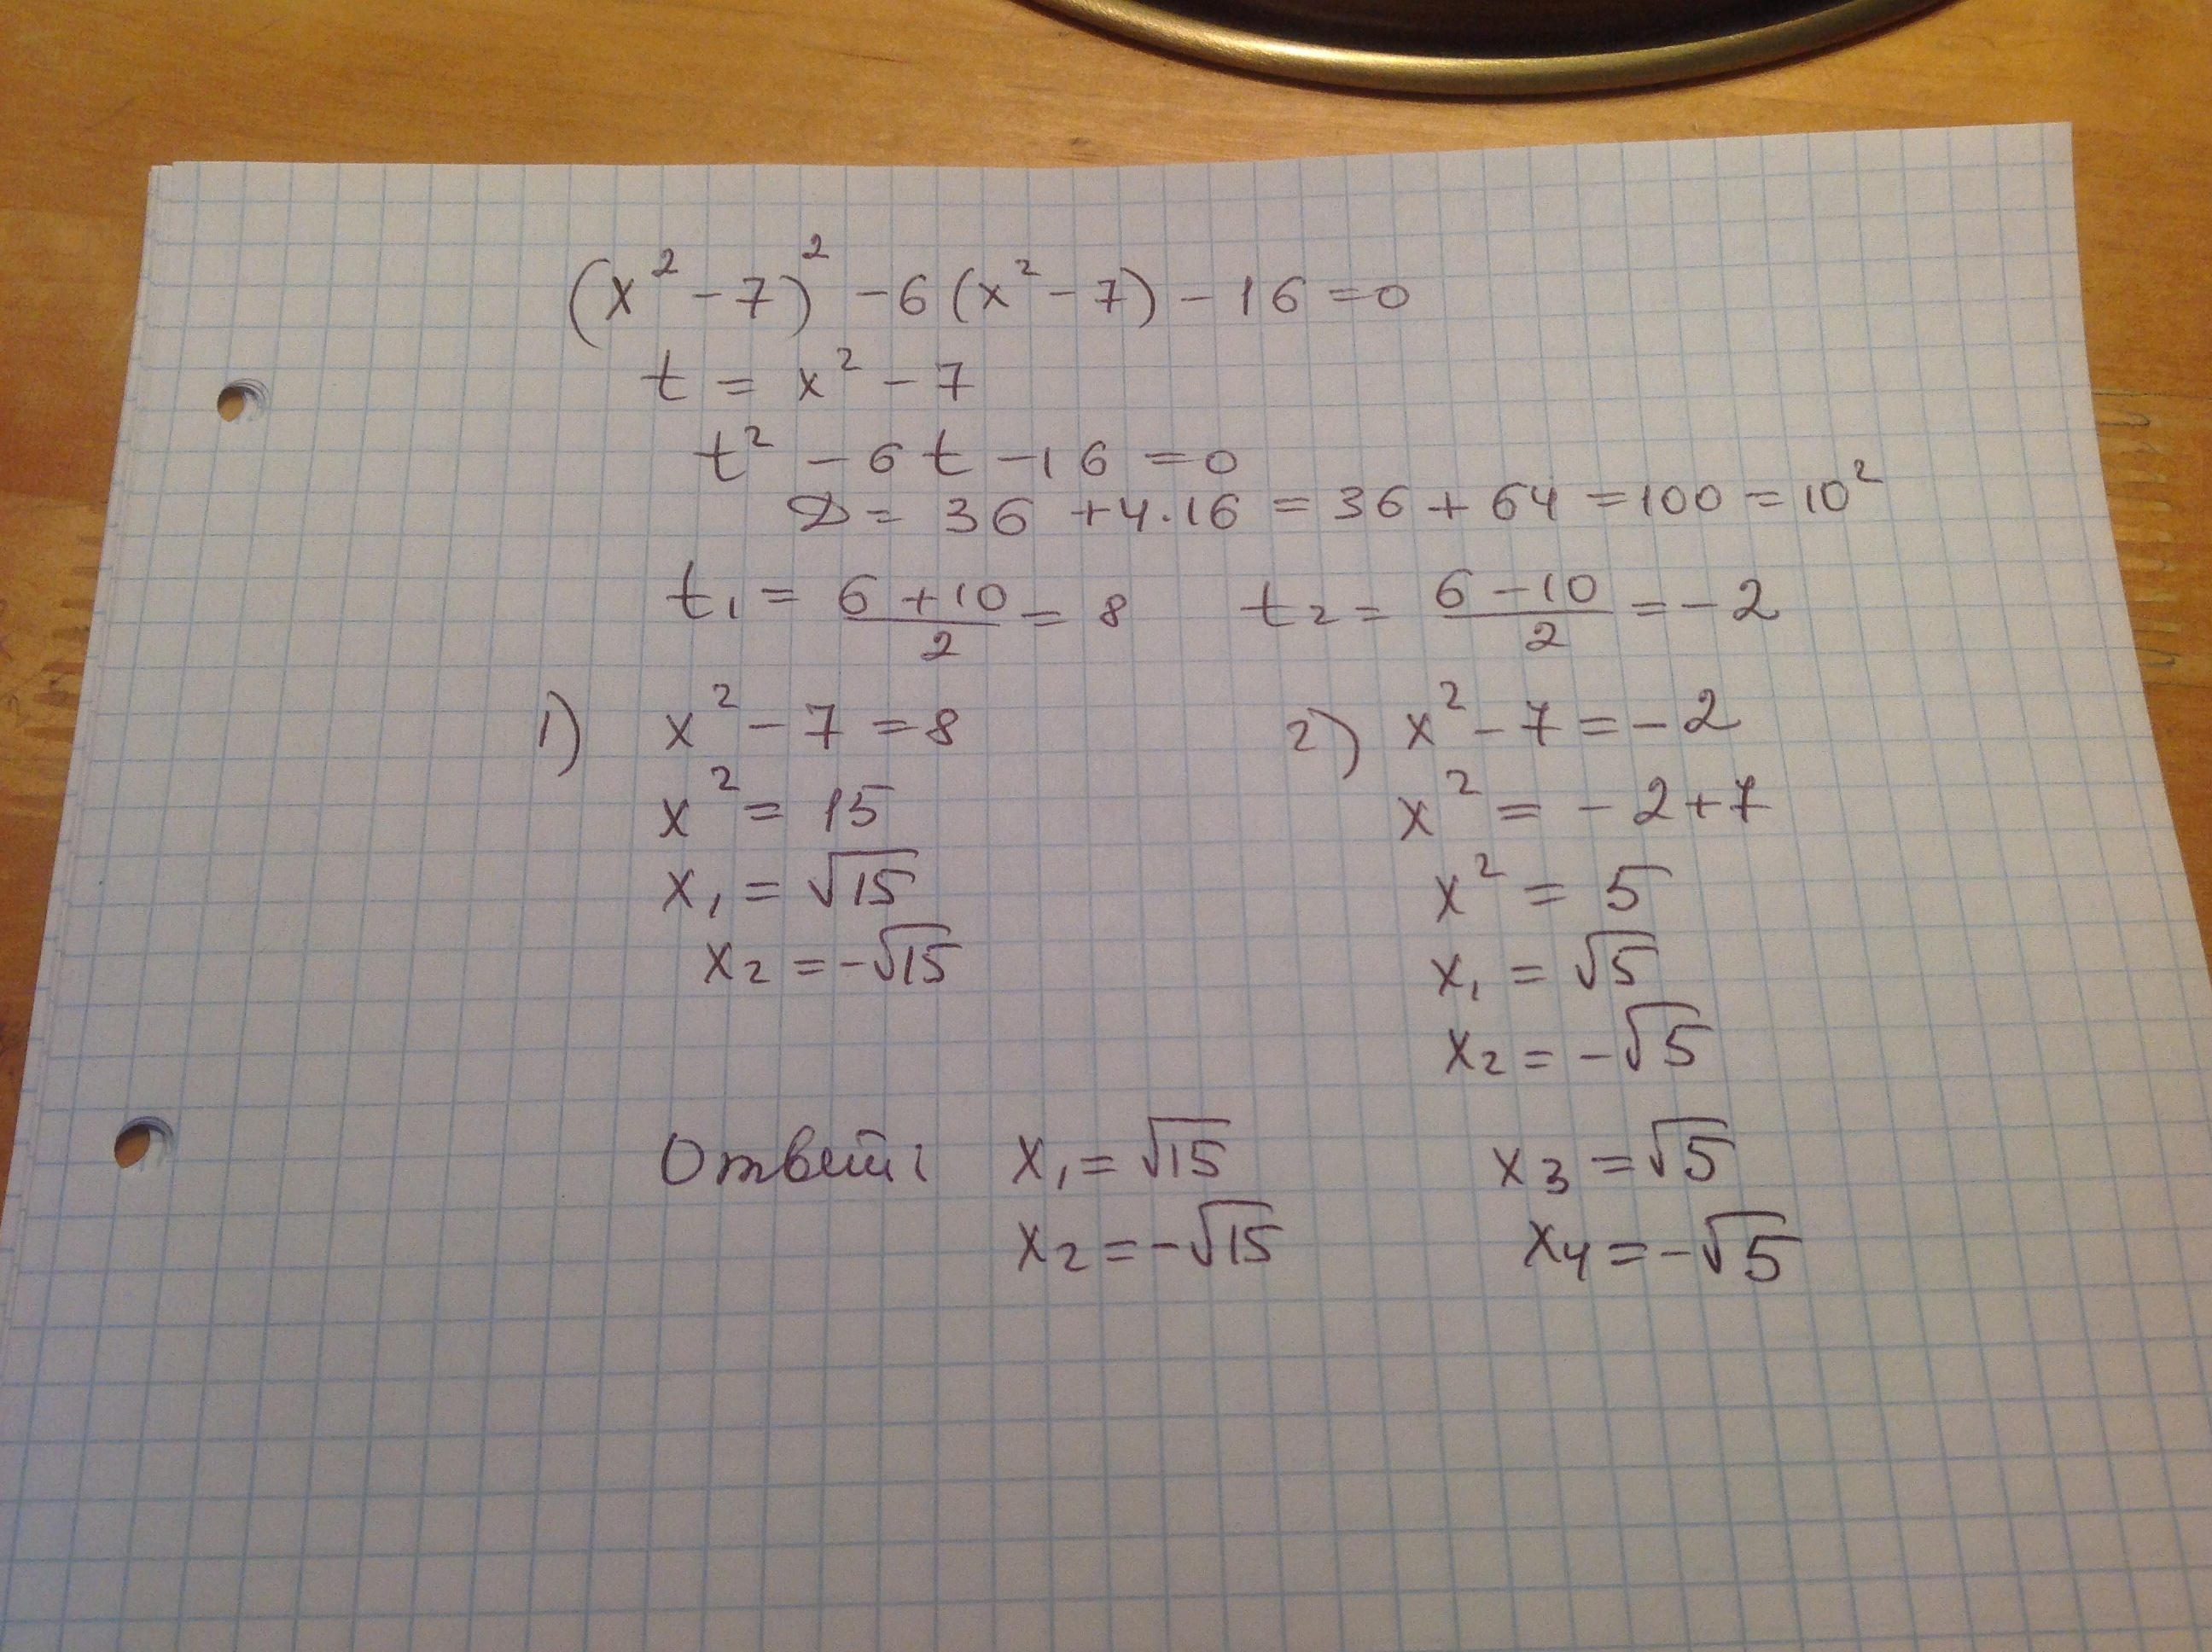 (x² - 7)² - 6(x² - 7) - 16 = 0
t = x² - 7
t² - 6t - 16 = 0
D = 36 + 4·16 = 36 + 64 = 100 = 10²
t₁ = (6 + 10)/2 = 8 t₂ = (6 - 10)/2 = -2
1) x² - 7 = 8 2) x² - 7 = -2
x² = 15 x² = -2 + 7
x₁ = √15 x² = 5
x₂ = -√15 x₁ = √5
x₂ = -√5
Ответ: x₁ = √15 x₃ = √5
x₂ = -√15 x₄ = -√5